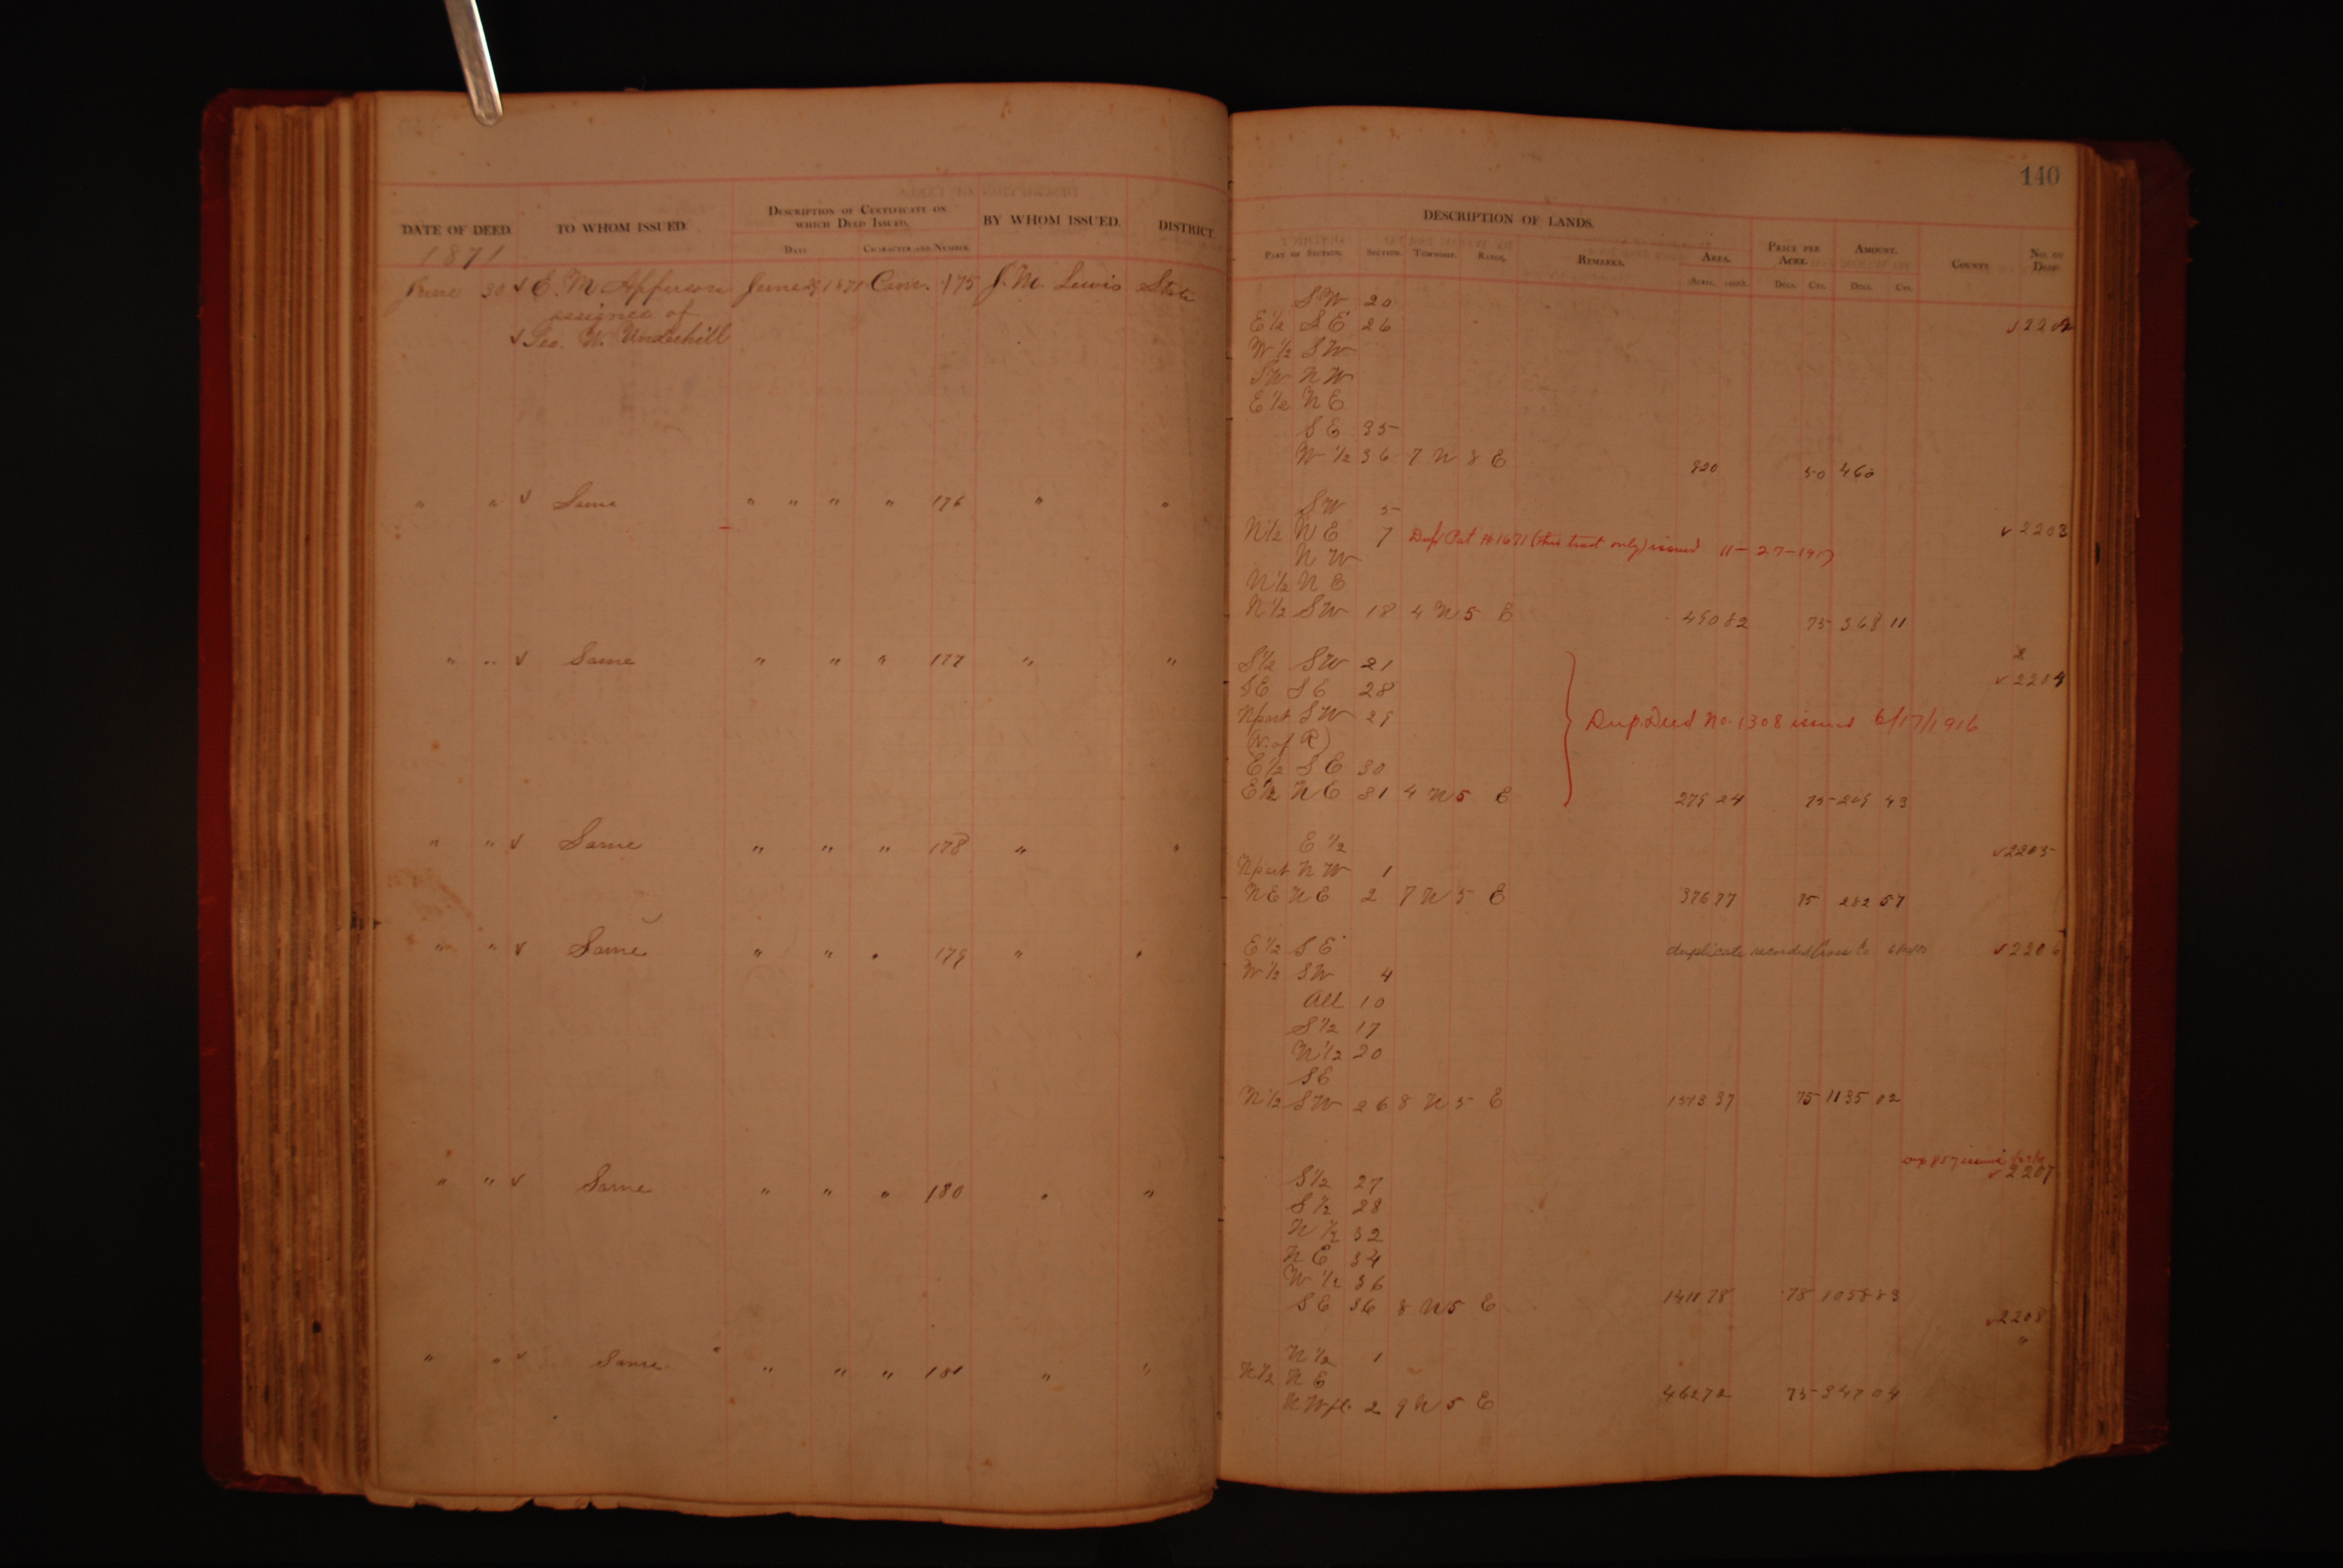 140
DATE OF DEED. TO WHOM ISSUED. DESCRIPTION OF CERTIFICATE ON WHICH DEED ISSUED. BY WHOM ISSUED. DISTRICT. DESCRIPTION OF LANDS. PRICE PER ACRE. AMOUNT. COUNTY NO. OF DEED
DATE CHARACTER AND NUMBER. PART OF SECTION. SECTION. TOWNSHIP. RANGE. REMARKS. AREA.
1871 ACRES 100ths. DOLS. CTS. DOLS. CTS.
June 30 √ E. M. Apperson June 29 1871 Com. 175 J. M. Lewis State SW 20
assignee of E½ SE 26 √ 2202
√ Geo. W. Underhill W½ SW
SW NW
E½ NE
SE 35
W½ 36 7 N 8 E 920 50 460
" " √ Same " " " " 176 " " SW 5
N½ NE 7 Dup Pat #1671 (this tract only) issued 11-27-1917 √ 2203
NW
N½ NE
N½ SW 18 4 N 5 E 490 82 75 368 11
" " √ Same " " " 177 " " S½ SW 21
SE SE 28 √ 2204
N part SW 29 Dup. Deed No. 1308 issued 6/17/1916
(N. of R)
E½ SE 30
E½ NE 31 4 N 5 E 279 24 75 209 43
" " √ Same " " " 178 " " E½ √ 2205
N part NW 1
NE NE 2 7 N 5 E 376 77 75 282 57
" " √ Same " " " 179 " " E½ SE duplicate recorded Cross Co √ 2206
W½ SW 4
All 10
S½ 17
N½ 20
SE
N½ SW 26 8 N 5 E 1513 37 75 1135 02
" " √ Same " " " 180 " " S½ 27 857 issued √ 2207
S½ 28
N½ 32
NE 34
W½ 36
SE 36 8 N 5 E 1411 78 75 1058 83
√ 2208
" " √ Same " " " 181 " " N½ 1 "
N½ NE
NW fl. 2 9 N 5 E 462 72 75 347 04